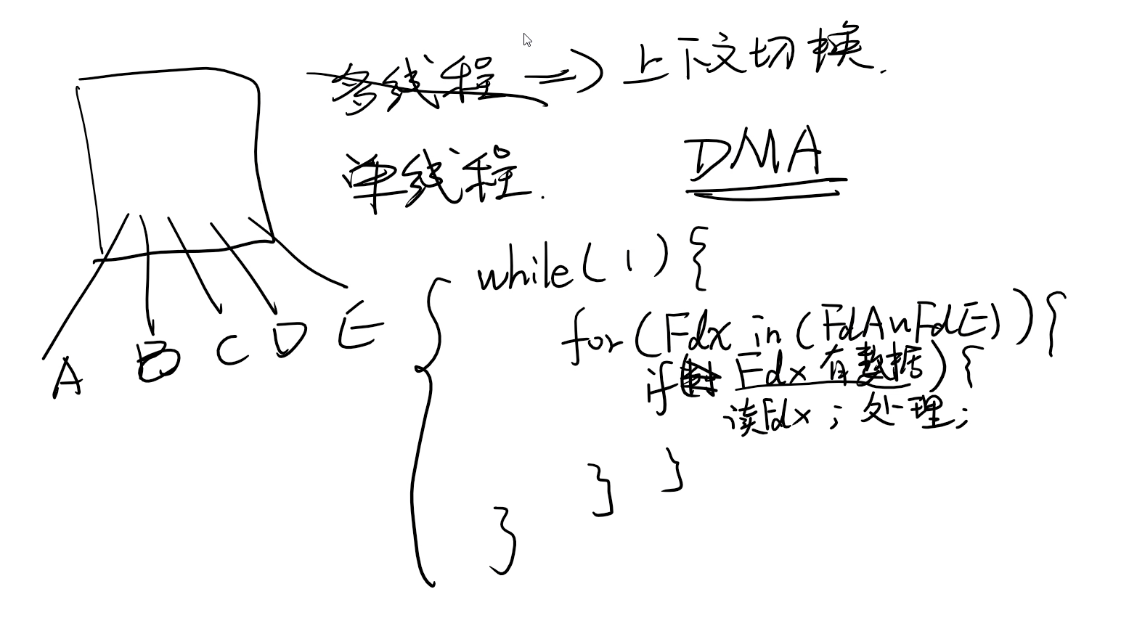 多线程 => 上下文切换.
单线程.
DMA
while(1){
for(Fdx in (FdA~FdE)){
if Fdx 有数据){
读Fdx; 处理;
}
}
}
A B C D E